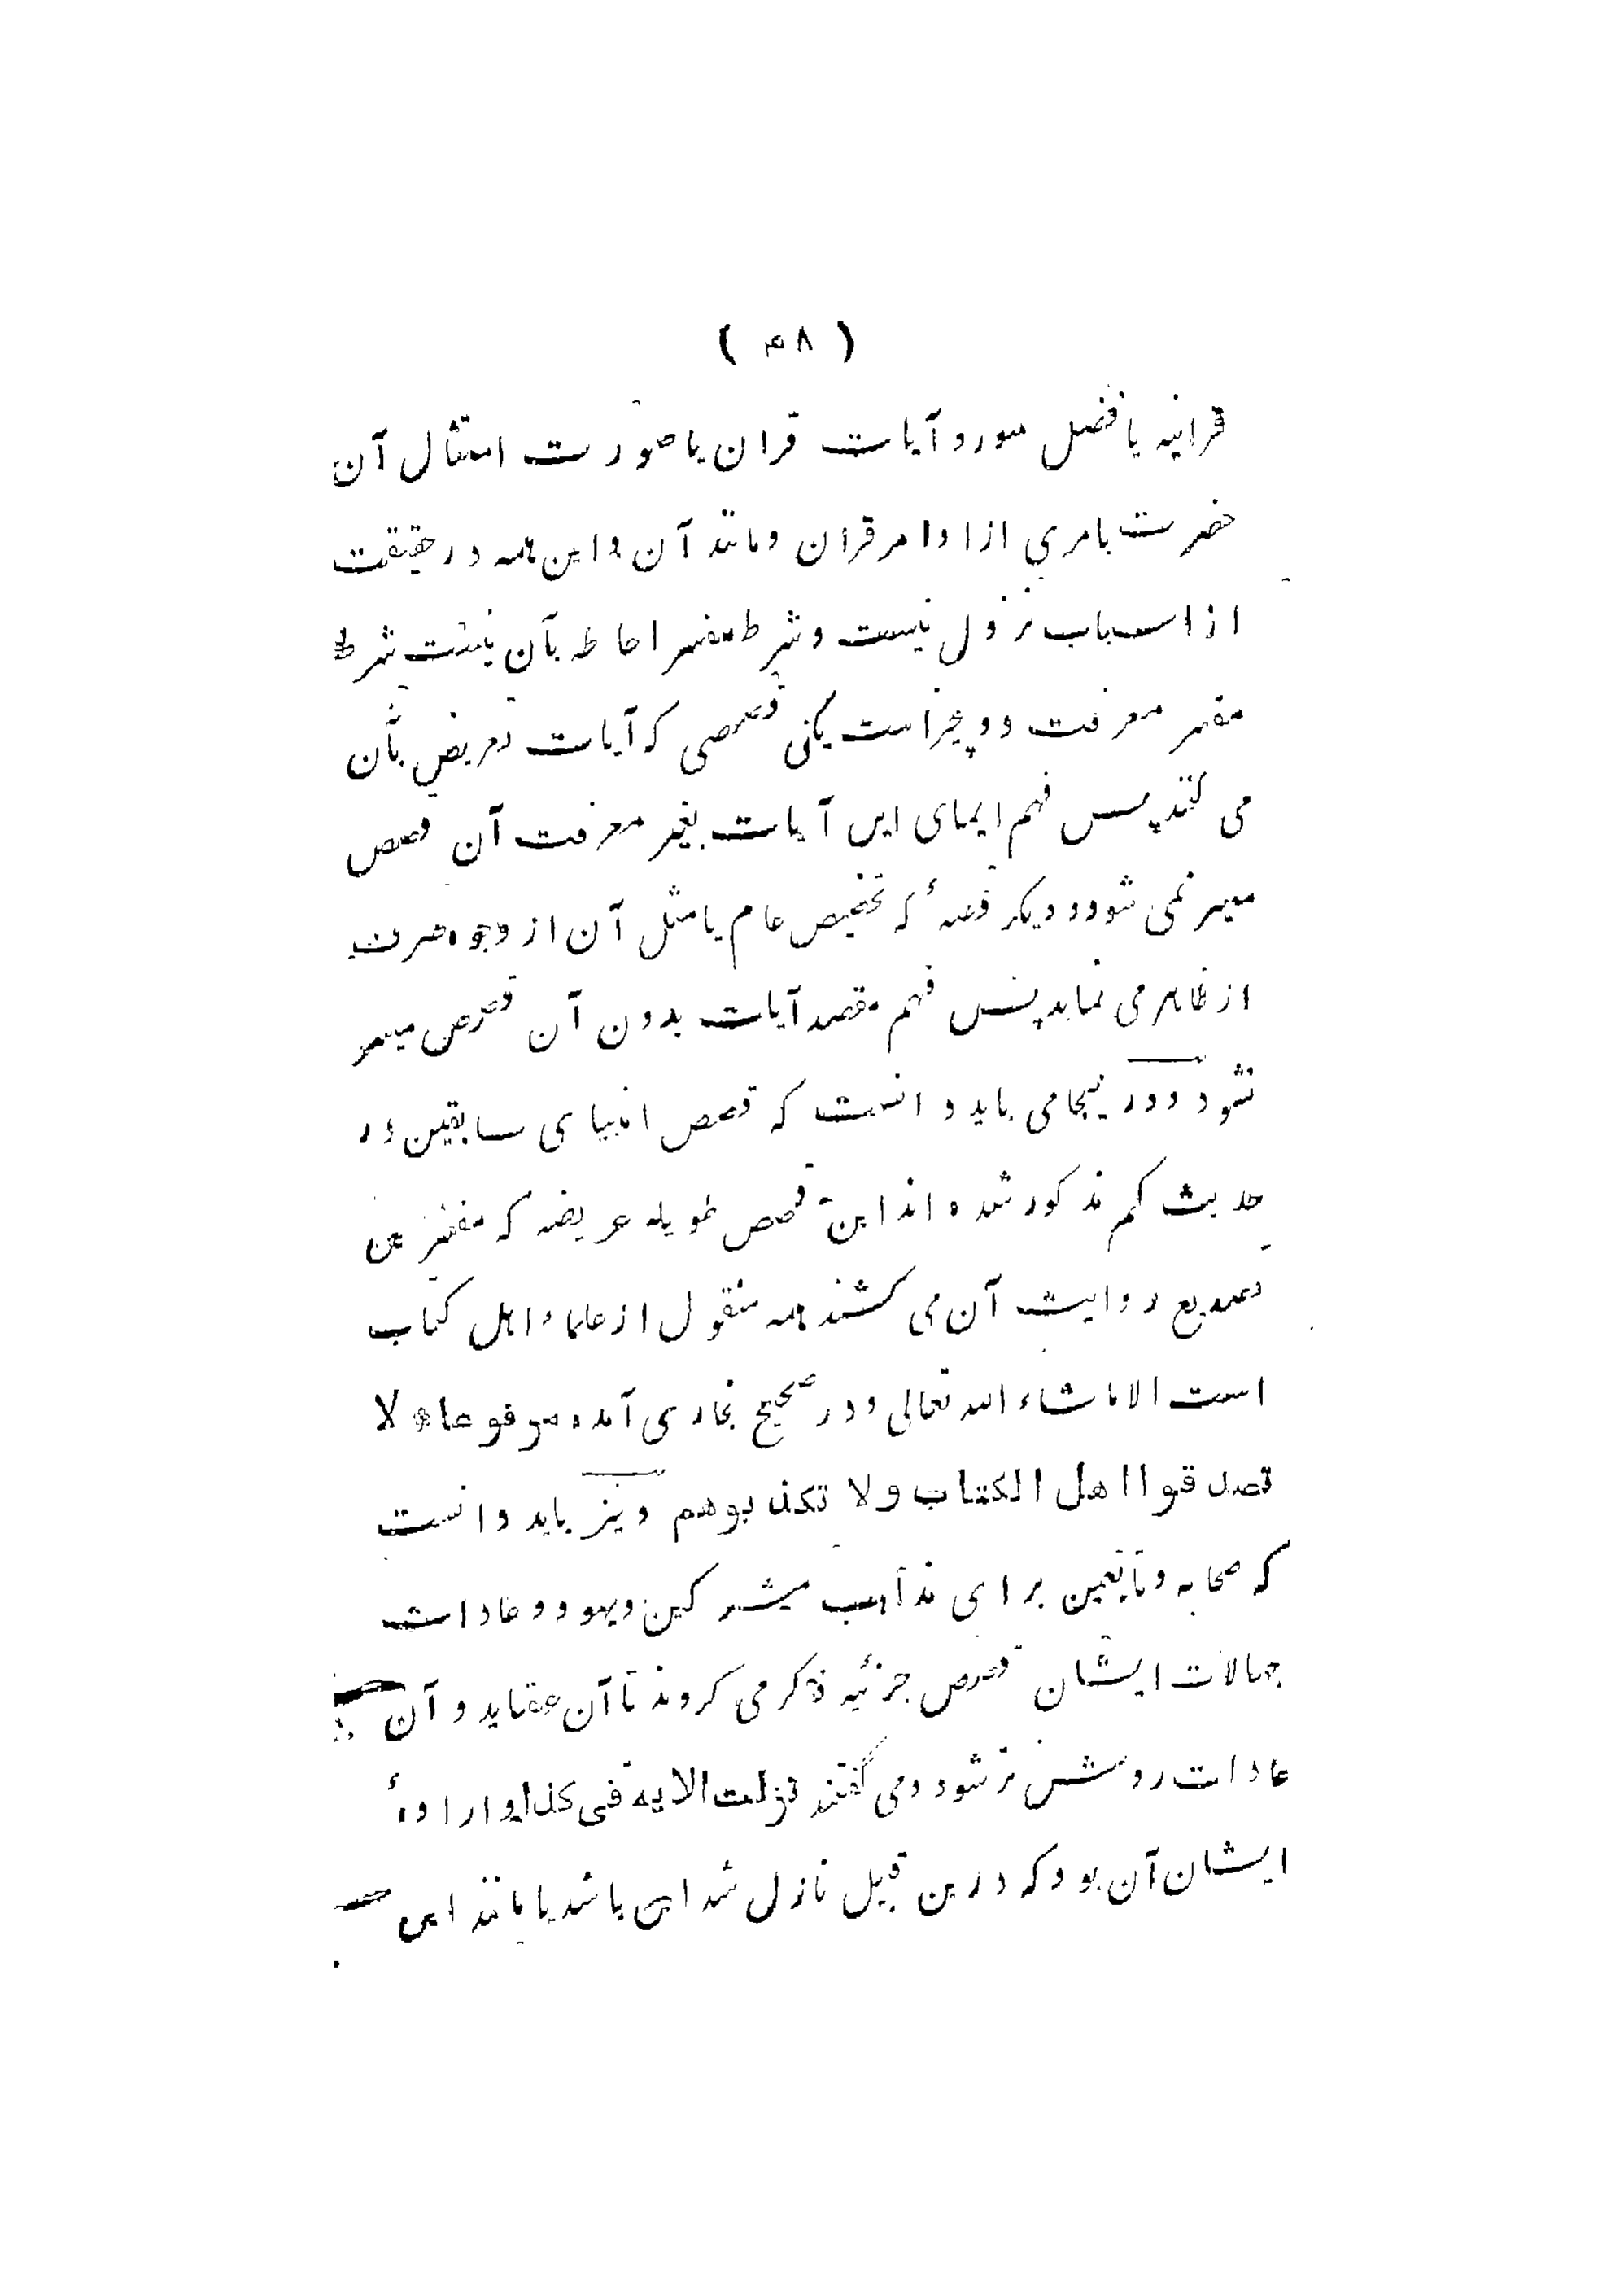 ( ۴۸ )
قرانیه یا فضل سور و آیات قران یا صورت امتثال آن
حضرت بامری از اوامر قران و مانند آن و این همه در حقیقت
از اسباب نزول نیست و شرط مفسر احاطه بآن نیست شرط
مفسر معرفت دو چیز است یکی قصصی که آیات تعریض بآن
می کنند پس فهم ایمای این آیات بغیر معرفت آن قصص
میسر نمی شود و دیگر قصهٔ که تخصیص عام یا مثل آن از وجوه صرف
از ظاهر می نماید پس فهم مقصد آیات بدون آن قصص میسر
نشود و درینجا می باید دانست که قصص انبیای سابقین در
حدیث کم مذکور شده اند این قصص طویله عریضه که مفسرین
تصدیع روایت آن می کشند همه منقول از علماء اهل کتاب
است الا ما شاء الله تعالی و در صحیح بخاری آمده مرفوعا * لا
تصدقوا اهل الکتاب ولا تکذبوهم و نیز باید دانست
که صحابه و تابعین برای مذاهب مشرکین و یهود و عادات
جهالات ایشان قصص جزئیه ذکر می کردند تا آن عقاید و آن
عادات روشن تر شود و می گفتند نزلت الایة فی کذا و ارادهٔ
ایشان آن بود که درین قبیل نازل شد این باشد یا مانند این